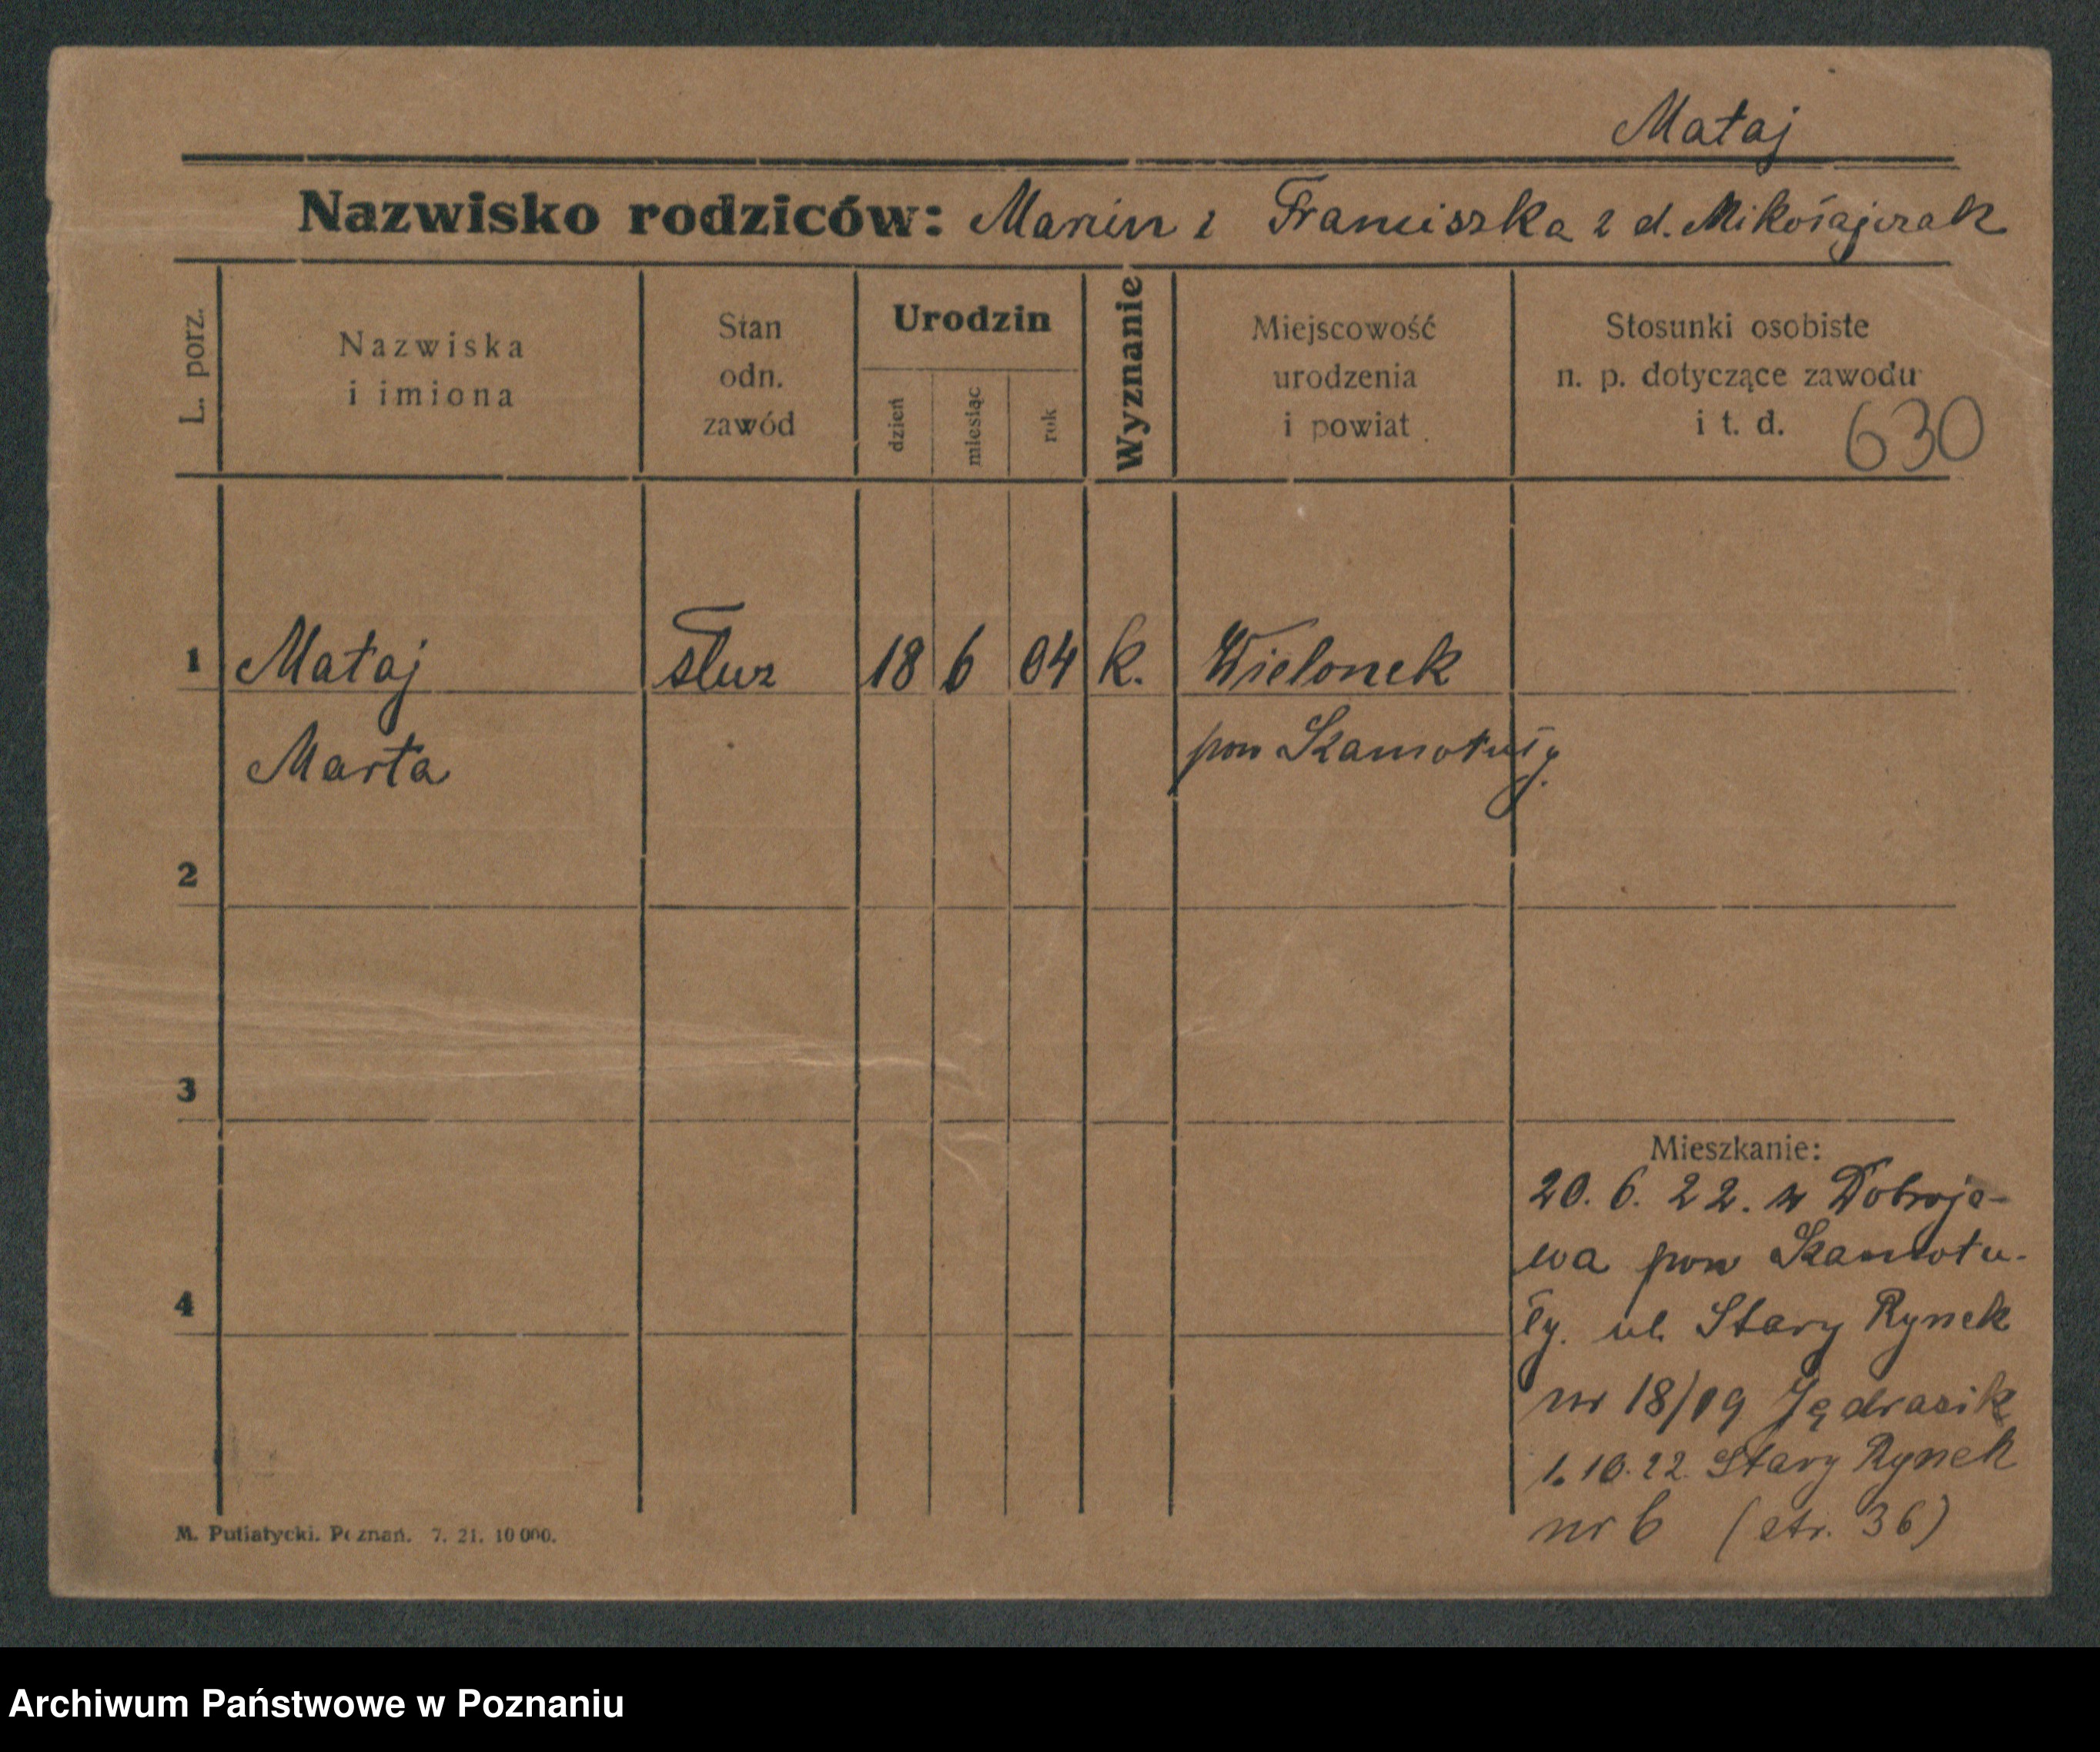 Mataj
Nazwisko rodziców: Marcin i Franciszka z d. Mikołajczak
L. porz.
Nazwiska
i imiona
Stan
odn.
zawód
Urodzin
dzień
miesiąc
rok
Wyznanie
Miejscowość
urodzenia
i powiat
Stosunki osobiste
n. p. dotyczące zawodu
i t. d.
630
1 Mataj służ 18 6 04 k. Wielonek
Marta pow Szamotuły.
2
3
Mieszkanie:
20. 6. 22. z Dobroje-
wa pow Szamotu-
4
ły. ul. Stary Rynek
nr 18/19 Jędrasik
1. 10. 22. Stary Rynek
nr 6 (str. 36)
M. Putiatycki. Poznań. 7. 21. 10 000.
Archiwum Państwowe w Poznaniu